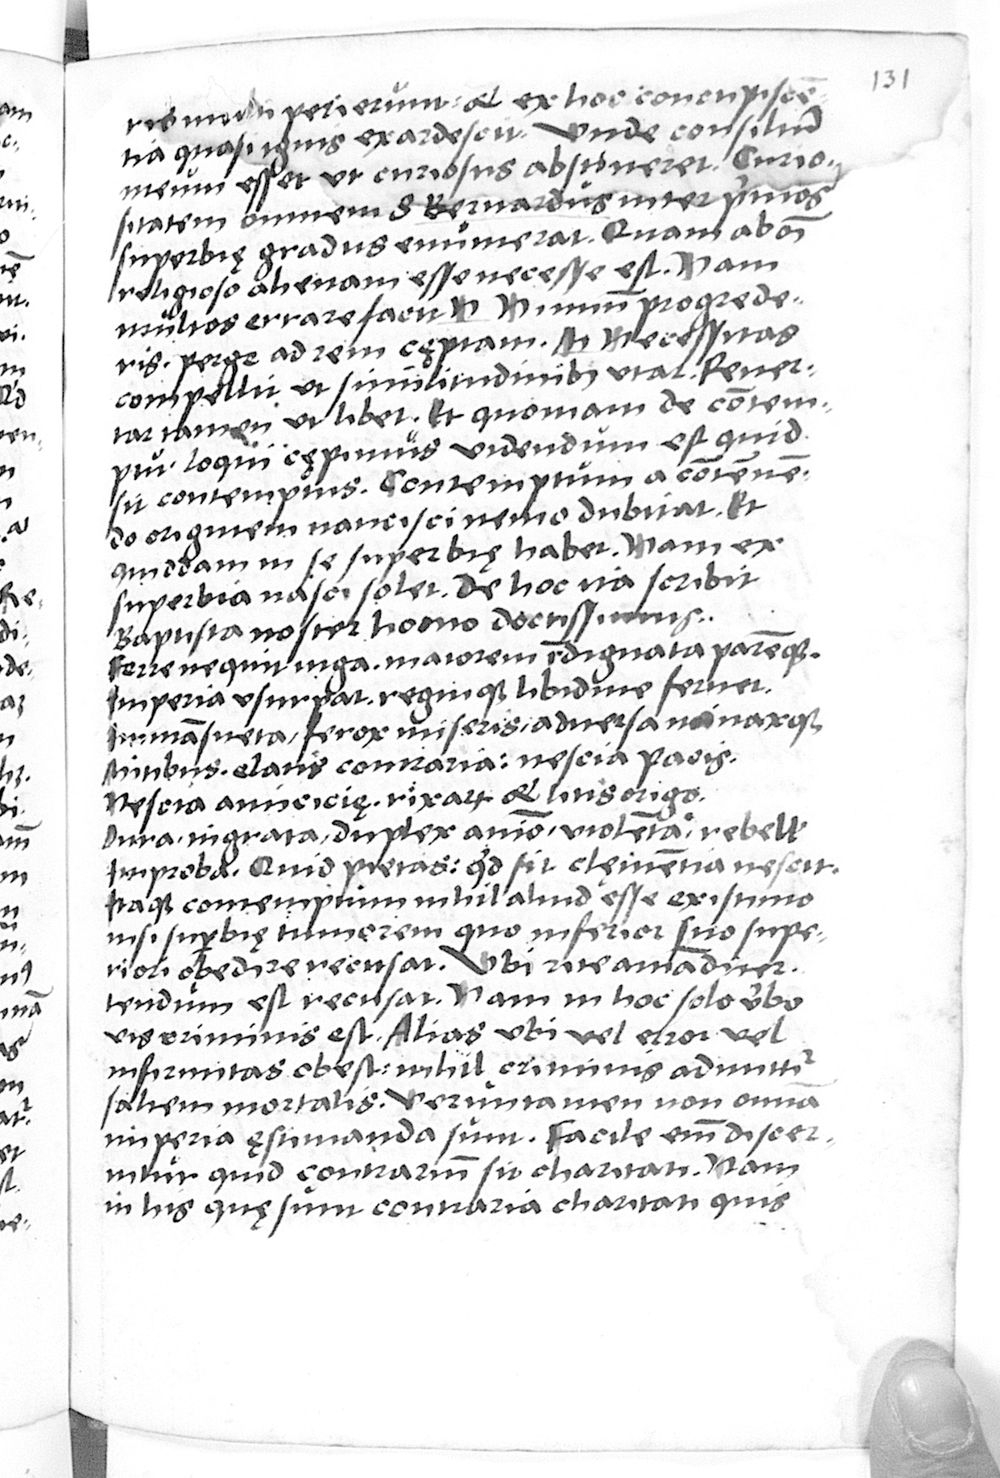 131
ris multi perierunt: & ex hoc concupiscē-
tia quasi ignis exardescit. Vnde consiliū
meum esset ut curiosus abstineret. Curio-
sitatem omnem S Bernardus inter primos
superbię gradus enumerat. Quam ab oī
religioso alienam esse necesse est. Nam
multos errare facit N Nimiū progrede-
ris. perge ad rem cęptam. A Necessitas
compellit ut similitudinib9 utar. Reuer-
tar tamen ut libet. Et quoniam de cōtem-
ptu loqui cępimus videndum est quid
sit contemptus. Contemptum a cōtēnē-
do originem nancisci nemo dubitat. Et
quiddam in se superbię habet. Nam ex
superbia nasci solet. De hoc ita scribit
Baptista noster homo doctissimus.
Ferre nequit iuga. maiorem īdignata parēq3.
Imperia usurpat. regnique libidine feruet.
Inmāsueta, ferox miseris, aduersa minaxq3
Mitibus. elatis contraria: nescia pacis.
Nescia amicicię. rixarꝝ & litis origo.
Dura, ingrata, duplex animo, violēta, rebellis
Improba. Quid pietas: qd sit clemētia nescit.
Itaq3 contemptum nihil aliud esse existimo
nisi supbię tumorem quo inferior suo supe-
riori obedire recusat. Vbi rite animaduer-
tendum est recusat. Nam in hoc solo verbo
vis criminis est. Alias ubi vel error vel
infirmitas obest: nihil criminis admittit᷑
saltem mortalis. Veruntamen non omnia
imperia ęstimanda sunt. Facile em̄ discer-
nitur quid contrariū sit charitati. Nam
in his quę sunt contraria charitati quis